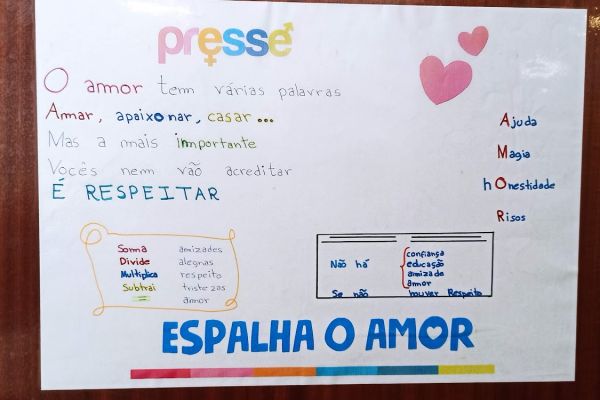 presse
O amor tem várias palavras
Amar, apaixonar, casar...
Mas a mais immportante
Vocês nem vão acreditar
É RESPEITAR
Ajuda
Magia
hOnestidade
Risos
Soma amizades
Divide alegrias
Multiplica respeito
Subtrai tristezas
= amor
Não há confiança
educação
amizade
amor
Se não houver Respeito
ESPALHA O AMOR